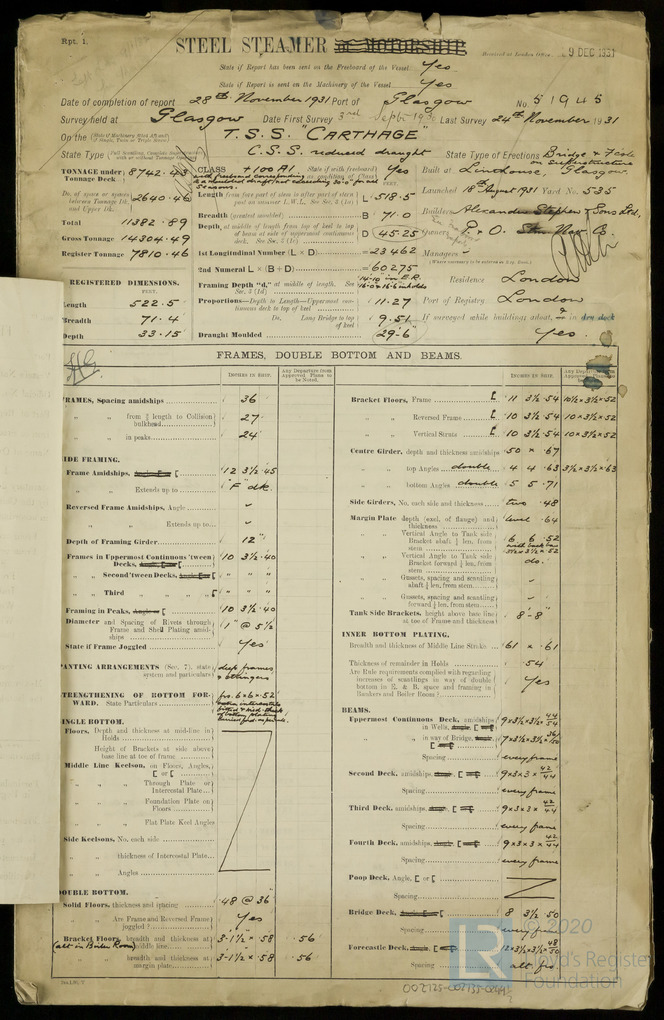 Rpt. 1.
STEEL STEAMER or MOTORSHIP
Received at London Office 9 DEC 1931
State if Report has been sent on the Freeboard of the Vessel Yes
State if Report is sent on the Machinery of the Vessel Yes
Date of completion of report 28th November 1931 Port of Glasgow No. 51945
Survey held at Glasgow Date First Survey 3rd Last Survey 24th November 1931
On the T.S.S. "CARTHAGE"
State Type C.S.S. reduced draught State Type of Erections Bridge & Fcsle on superstructure
TONNAGE under Tonnage Deck 8742.43
CLASS +100A1 State if with freeboard Yes
Built at Linthouse, Glasgow.
Launched 18th August 1931 Yard No. 535
Do. of space or spaces between Tonnage Dk. and Upper Dk. 2640.46
Total 11382.89
Gross Tonnage 14304.49
Register Tonnage 7810.46
L 518.5
Breadth (greatest moulded) B 71.0
D 45.25
1st Longitudinal Number (L × D) = 23462
2nd Numeral L × (B + D) = 60275
Framing Depth "d," at middle of length.
Proportions—Depth to Length—Uppermost continuous deck to top of keel 11.27
Do. Long Bridge to top of keel 9.51
Draught Moulded 29'-6"
Builders Alexander Stephen & Sons Ltd.
Owners P. & O. Stm. Nav. Co.
Managers
Residence London
Port of Registry London
If surveyed while building, afloat, or in dry dock Yes.
REGISTERED DIMENSIONS.
FEET.
Length 522.5
Breadth 71.4
Depth 33.15
FRAMES, DOUBLE BOTTOM AND BEAMS.
INCHES IN SHIP.
Any Departure from Approved Plans to be Noted.
INCHES IN SHIP.
FRAMES, Spacing amidships 36
" " from ⅗ length to Collision bulkhead 27
" " in peaks 24
SIDE FRAMING.
Frame Amidships, [ 12 3½ .45
" " Extends up to "F" dk.
Reversed Frame Amidships, Angle
" " Extends up to
Depth of Framing Girder 12"
Frames in Uppermost Continuous 'tween Decks, [ 10 3½ .40
" " Second 'tween Decks, [ " " "
" " Third " " [ " " "
Framing in Peaks, [ 10 3½ .40
Diameter and Spacing of Rivets through Frame and Shell Plating amidships 1" @ 5⅛
State if Frame Joggled Yes
PANTING ARRANGEMENTS (Sec. 7), state system and particulars deep frames & stringers
STRENGTHENING OF BOTTOM FORWARD. State Particulars
SINGLE BOTTOM.
Floors, Depth and thickness at mid-line in Holds
Height of Brackets at side above base line at toe of frame
Middle Line Keelson, on Floors, Angles, [ or [
" " Through Plate or Intercostal Plate
" " Foundation Plate on Floors
" " Flat Plate Keel Angles
Side Keelsons, No. each side
" " thickness of Intercostal Plate
" " Angles
DOUBLE BOTTOM.
Solid Floors, thickness and spacing .48 @ 36"
" " Are Frame and Reversed Frame joggled? Yes
Bracket Floors, breadth and thickness at middle line 3-1½" × .58 .56
(alt in Boiler Room)
" " breadth and thickness at margin plate 3-1½" × .58 .56
Bracket Floors, Frame [ 11 3½ .54 10½ × 3½ × .52
" " Reversed Frame [ 10 3½ .54 10 × 3½ × .52
" " Vertical Struts [ 10 3½ .54 10 × 3½ × .52
Centre Girder, depth and thickness amidships 50 × .67
" " top Angles double 4 4 .63 3½ × 3½ × .63
" " bottom Angles double 5 5 .71
Side Girders, No. each side and thickness two .48
Margin Plate depth (excl. of flange) and thickness level .64
" " Vertical Angle to Tank side Bracket abaft ¼ len. from stem 6 6 .52
" " Vertical Angle to Tank side Bracket forward ¼ len. from stem do.
" " Gussets, spacing and scantling abaft ¼ len. from stem
" " Gussets, spacing and scantling forward ¼ len. from stem
Tank Side Brackets, height above base line at toe of Frame and thickness 8'-8"
INNER BOTTOM PLATING.
Breadth and thickness of Middle Line Strake 61 × .61
Thickness of remainder in Holds .54
Are Rule requirements complied with regarding increases of scantlings in way of double bottom in E. & B. space and framing in Bunkers and Boiler Room? Yes
BEAMS.
Uppermost Continuous Deck, amidships in Wells, [ 9 × 3½ × 3½ × .44/.54
" " in way of Bridge, [ 7 × 3½ × 3½ ×
Spacing every frame
Second Deck, amidships, [ 9 × 3 × 3 × .42/.44
Spacing every frame
Third Deck, amidships, [ 9 × 3 × 3 × .42/.44
Spacing every frame
Fourth Deck, amidships, [ 9 × 3 × 3 × .42/.44
Spacing every frame
Poop Deck, Angle, [ or [
Spacing
Bridge Deck, [ 8 3½ .50
Spacing every frame
Forecastle Deck, [ 12 × 3½ × 3½ × .48/.50
Spacing alt. frs.
© 2020
Lloyd's Register
Foundation